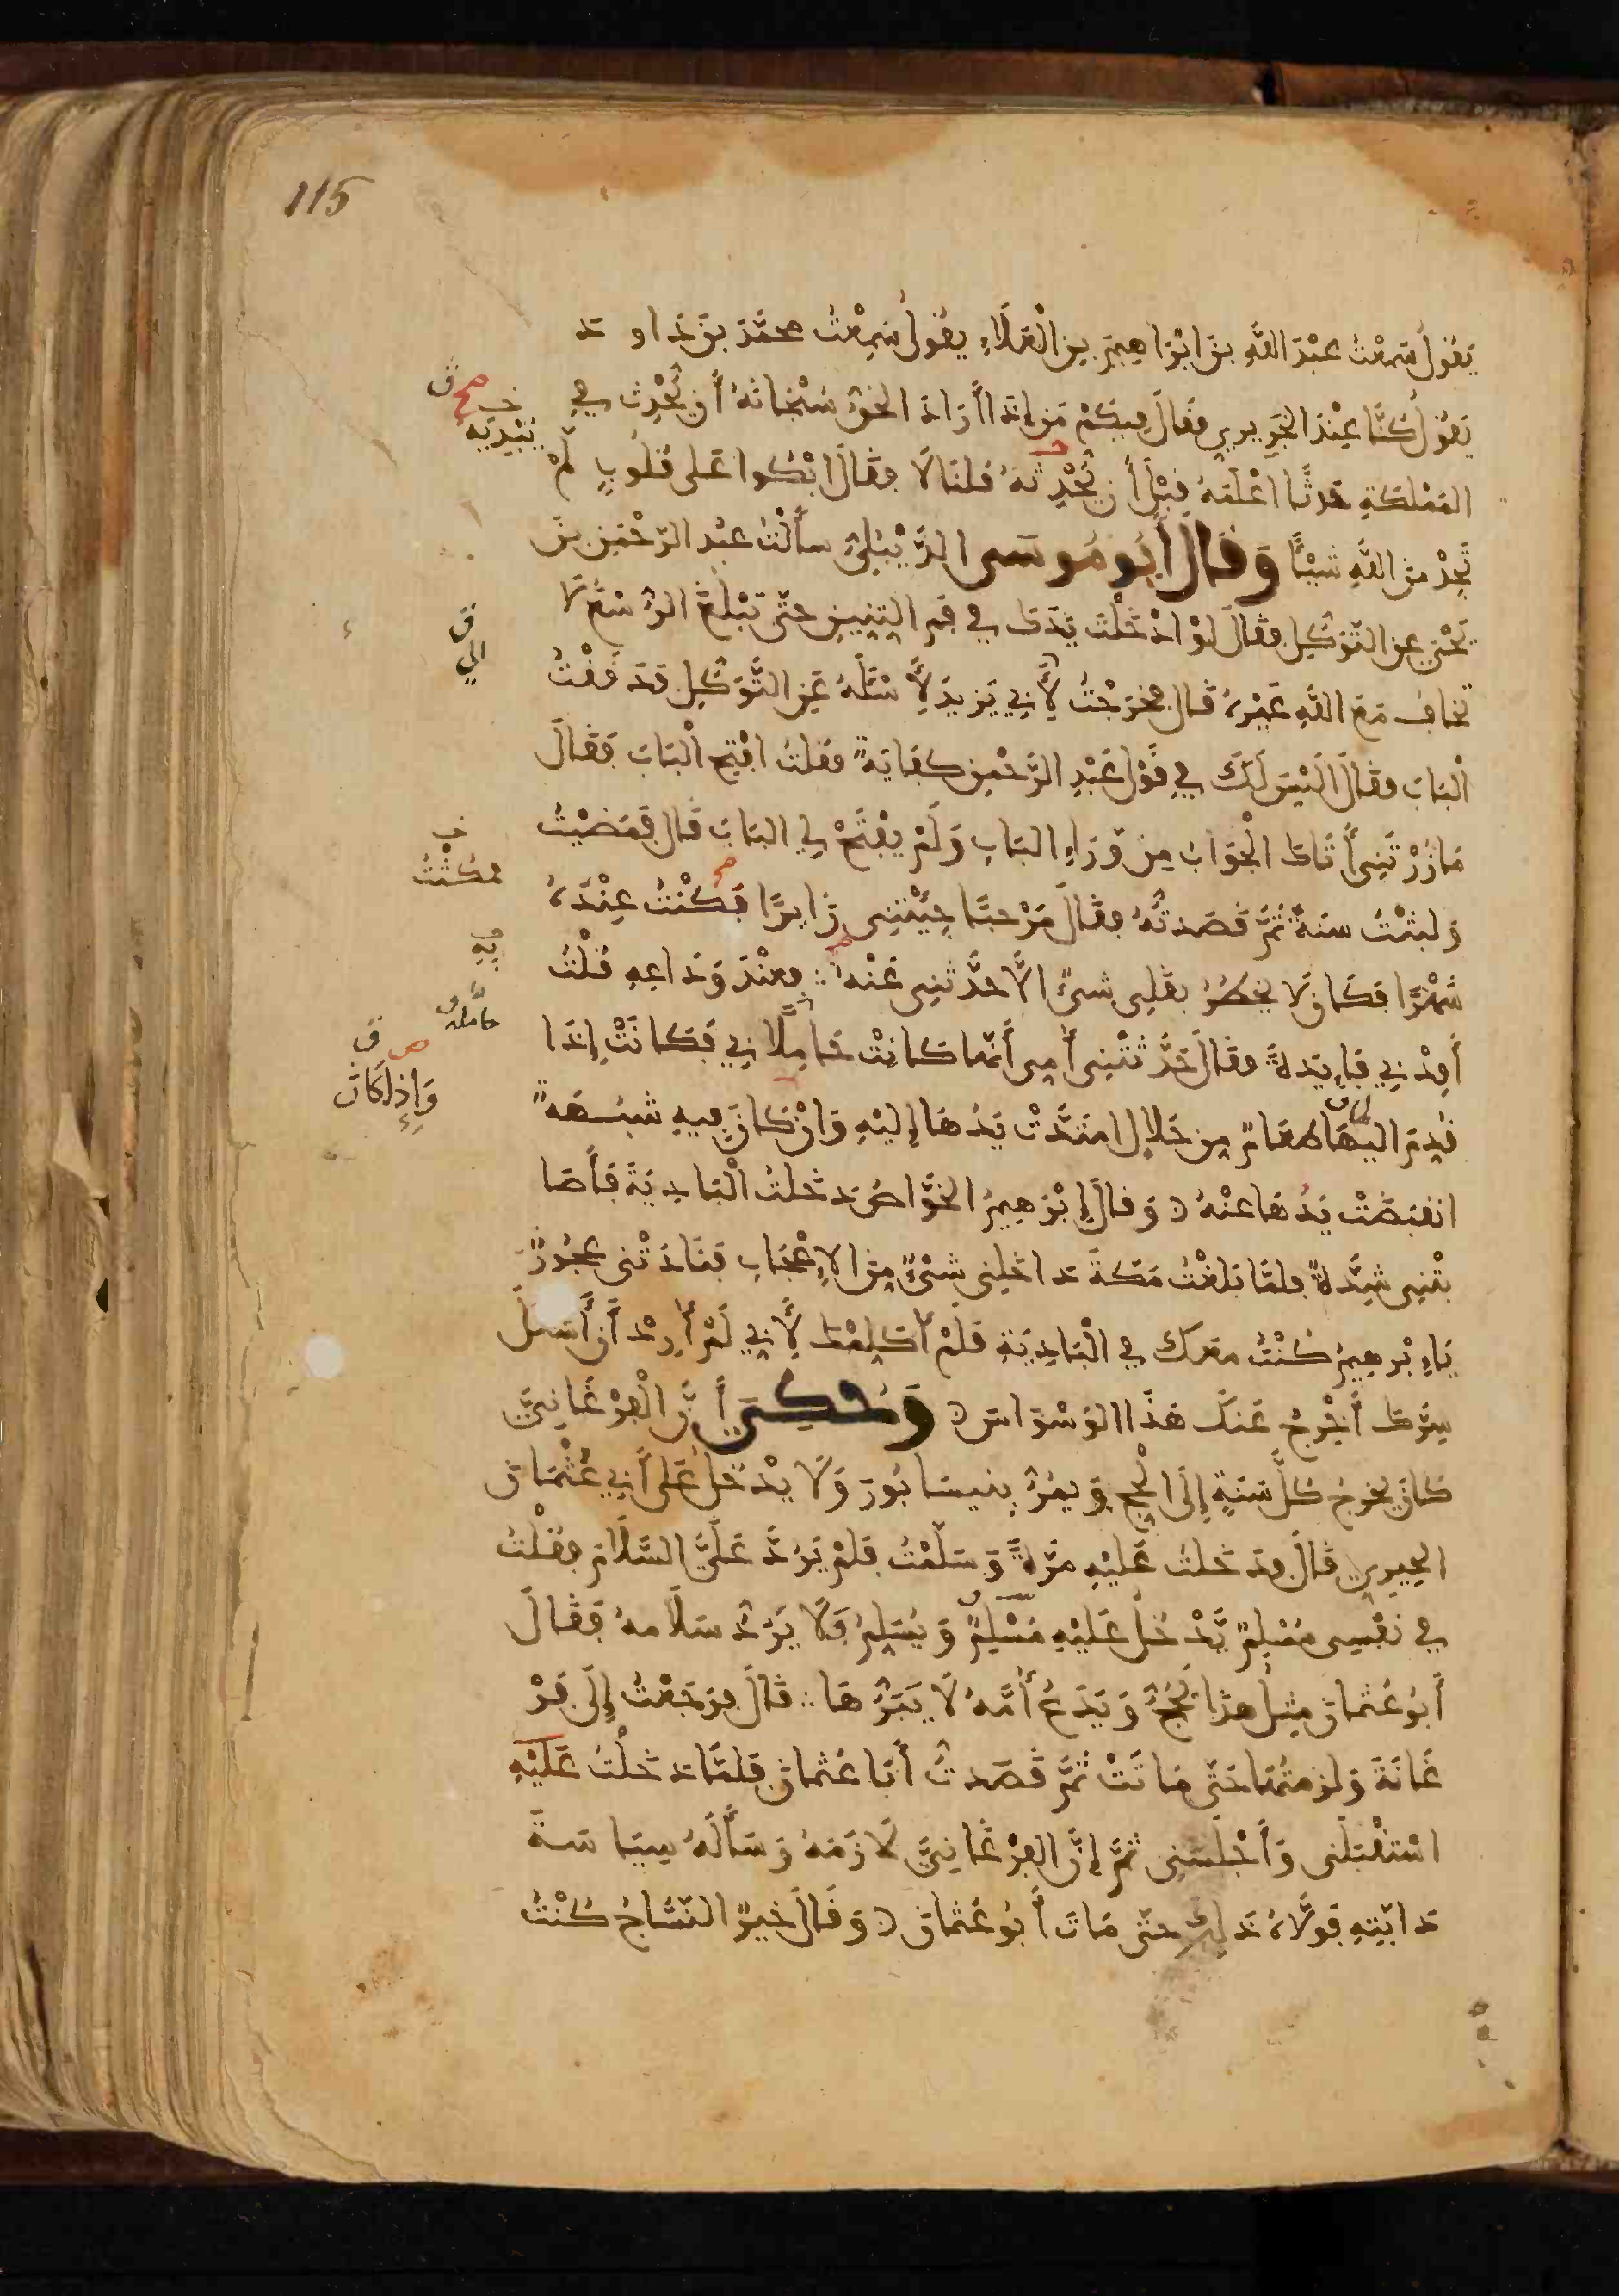 115
يَقُولُ سَمِعْتُ عَبْدَ اللَّهِ بنَ ابْرَاهِيمَ بنِ الْعَلَاءِ يقُولُ سَمِعْتُ محمَّدَ بنَ دَاود
يَقُولُ كُنَّا عِنْدَ الجَرِيرِي فقال هل فيكُمْ مَن إذَا أرَادَ الحَقُّ سُبْحَانَهُ أن يُحْدِثَ في
المَمْلَكَةِ حَدثًا اعْلَمَهُ قَبْلَ أن يُحْدِثهُ قلنَا لَا فقَالَ ابْكُوا عَلى قُلُوبٍ لَمْ
تَجِدْ منَ اللَّهِ شَيْئًا وَقَالَ أبُو مُوسَى الدَّيْبُلِيُّ سألْتُ عبْدَ الرَّحْمَنِ بْنَ
يَحْيَى عنِ التَّوَكُّلِ فقَالَ لوْ ادْخَلْتَ يَدَكَ في فَمِ التِّنِّينِ حتَّى تبْلُغَ الرُّسْغَ لَا
تخَافُ مَعَ اللَّهِ غَيْرَهُ قَالَ فخَرَجْتُ لِأَبِي يَزِيدَ لِأَسْئَلَهُ عَنِ التَّوَكُّلِ فَدَقَقْتُ
الْبَابَ فقَالَ الَيْسَ لَكَ فِي قَوْلِ عَبْدِ الرَّحْمنِ كفَايَةٌ فقلتُ افْتَحِ الْبَابَ فَقَالَ
مَا زُرْتَنِي أتَاكَ الْجَوَابُ مِن وَرَاءِ البَابِ وَلَمْ يفْتَحْ لِي البَابَ قَالَ فَمَضَيْتُ
وَلَبثْتُ سنَةً ثُمَّ قَصَدتُّهُ فقَالَ مَرْحبًا جِئْتَنِي زَايرًا فَكُنْتُ عِنْدَهُ
شَهْرًا فكَانَ لَا يخطُرُ بقَلبِي شيءٌ الَّا حدَّثنِي عَنْهُ فعِنْدَ وَدَاعِهِ قُلْتُ
أفِدْنِي فَايِدَةً فقَالَ حَدَّثتْنِي أُمِّي أنَّهَا كَانتْ حَامِلًا بِي فَكَانَتْ إذَا
قُدِّمَ اليْهَا طعَامٌ مِن حَلالٍ امتَدَّتْ يَدُهَا إليْهِ وَانْ كَانَ فِيهِ شُبْهَةٌ
انقبَضَتْ يَدُهَا عنْهُ وَقالَ إبْرَهِيمُ الخَوَّاصُ دخلتُ الْبَادِيَةَ فَأَصَا
بتْنِي شِدَّةٌ فلمَّا بَلغْتُ مَكَّةَ دَاخَلنِي شَيْءٌ مِنَ الاِعْجَابِ فنَادَتْنِي عجُوزٌ
يَاإِبْرهِيمُ كُنْتُ معَكَ فِي الْبَادِيَةِ فَلَمْ أُكَلِّمْكَ لِأَنِّي لَمْ أُرِدْ أنْ أشغَلَ
سِرَّكَ أخْرِجْ عَنكَ هَذَا الوَسْوَاسَ وَحُكِيَ أنَّ الْفَرْغَانِيَّ
كَانَ يخرُجُ كُلَّ سَنَةٍ إلَى الْحجِّ وَيمُرُّ بِنيسَابُورَ وَلَا يدْخُلُ عَلَى أَبِي عُثْمَانَ
الحِيرِي قَالَ فدخلتُ عَليْهِ مَرَّةً وَسَلّمْتُ فلمْ يَرُدَّ عَلَيَّ السَّلَامَ فقُلْتُ
في نَفْسِي مُسْلِمٌ يَدْخُلُ عَلَيْهِ مُسْلِمٌ وَيُسَلِّمُ فَلَا يَرُدُّ سَلَامهُ فَقَالَ
أبُو عُثمَانَ مِثلُ هَذَا يَحُجُّ وَيَدَعُ أُمَّهُ لَا يَبَرُّهَا قَالَ فرَجَعْتُ إلَى فَرْ
غَانَةَ وَلزمتُهَا حَتَّى مَاتَتْ ثُمَّ قَصَدتُ أبَا عُثمَانَ فَلمَّا دَخلْتُ عَلَيْهِ
اسْتَقْبَلَنِي وَأَجْلَسَنِي ثُمَّ إنَّ الفَرْغَانِيَّ لَازَمَهُ وَسَأَلَهُ سِيَاسَةَ
دَابَّتِهِ فَوَلَّاهُ ذَلِكَ حتَّى مَاتَ أبُو عُثمَانَ وَقَالَ خَيرٌ النَّسَّاجُ كُنْتُ
خ
يُبْدِيَه
ق
الى
خ
فمكثْتُ
بِهِ
حاملة
ق
وَإِذا كَانَ